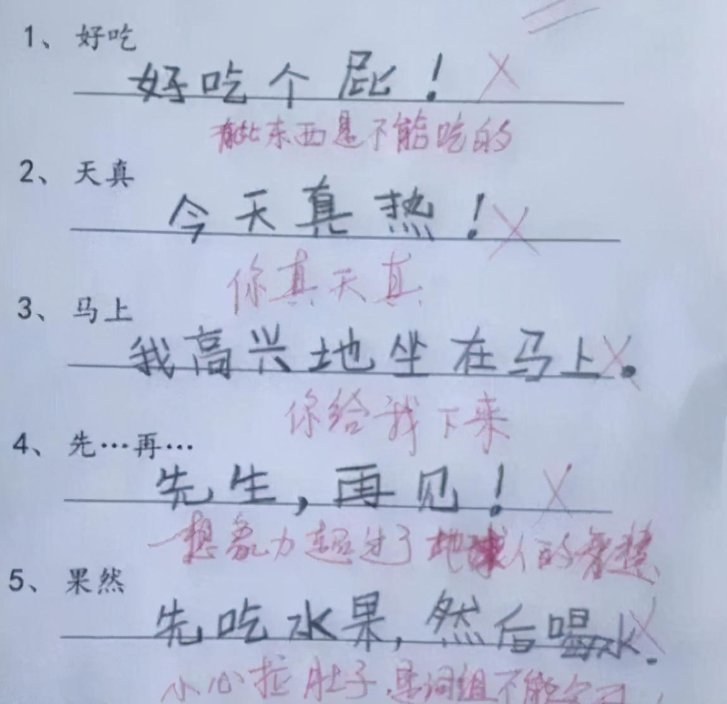 1、好吃
好吃个屁！
有些东西是不能吃的
2、天真
今天真热！
你真天真
3、马上
我高兴地坐在马上。
你给我下来
4、先…再…
先生，再见！
想象力超过了地球人的智慧
5、果然
先吃水果，然后喝水.
小心拉肚子,是词组不能分开